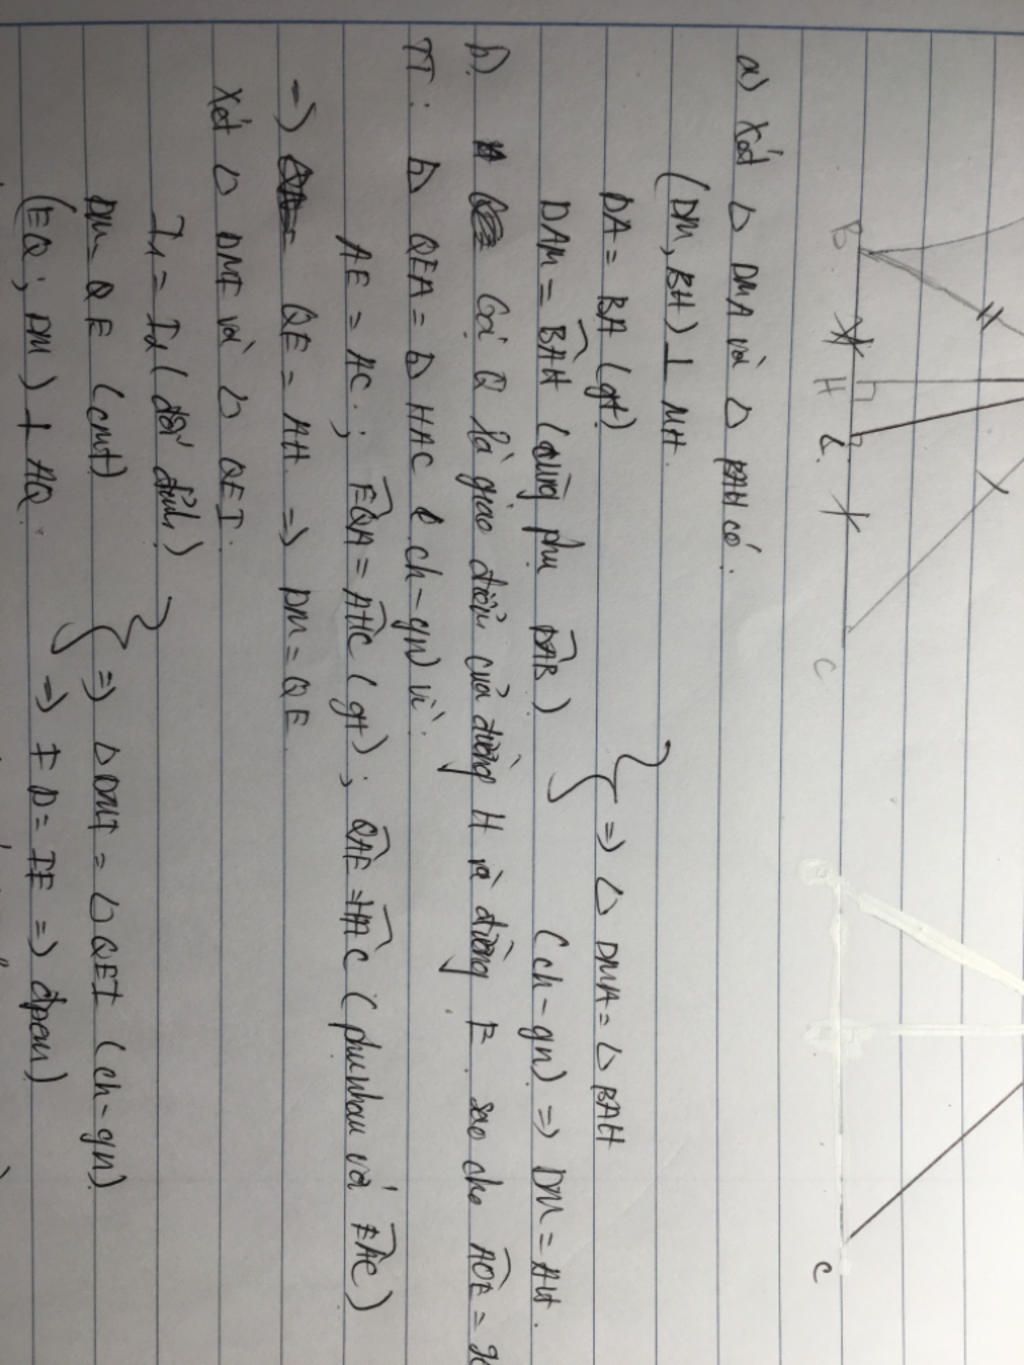 B H L C C
a) Xét Δ DMA và Δ BAH có.
(DM, BH) ⊥ MH.
DA = BA (gt)
DAM = BAH (cùng phụ DAB)
} => Δ DMA = Δ BAH
(ch-gn) => DM = AH.
b) Gọi Q là giao điểm của đường H và đường E sao cho AQE =
TT: Δ QEA = Δ HAC (ch-gn) vì.
AE = AC; EQA = AHC (gt); QAE = HAC (phụ nhau với EAC)
-> QE = AH. => DM = QE
Xét Δ DMI và Δ QEI.
I1 = I2 (đối đỉnh)
DM = QE (cmt)
(EQ; DM) ⊥ AQ.
} => Δ DMI = Δ QEI (ch-gn)
-> ID = IE => đpcm)